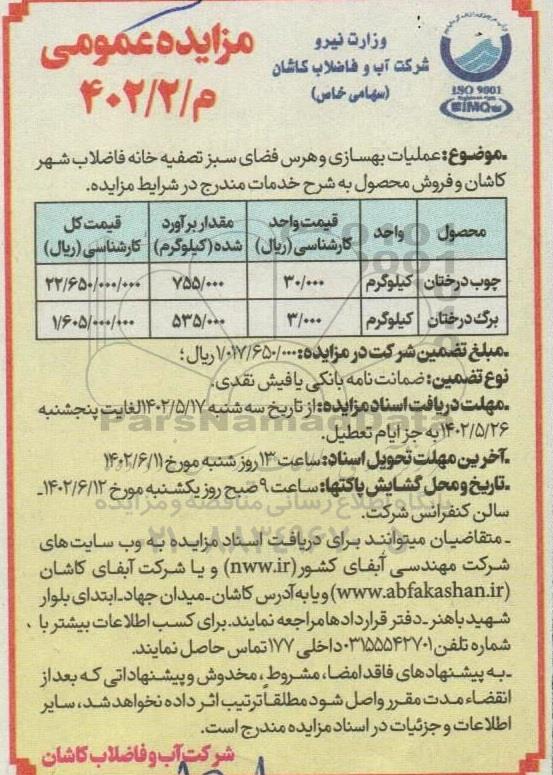 وزارت نیرو
شرکت آب و فاضلاب کاشان
(سهامی خاص)
ISO 9001
IMQ
مزایده عمومی
م/۴۰۲/۲
ـ موضوع: عملیات بهسازی و هرس فضای سبز تصفیه خانه فاضلاب شهر
کاشان و فروش محصول به شرح خدمات مندرج در شرایط مزایده.
محصول | واحد | قیمت واحد کارشناسی (ریال) | مقدار برآورد شده (کیلوگرم) | قیمت کل کارشناسی (ریال)
چوب درختان | کیلوگرم | ۳۰/۰۰۰ | ۷۵۵/۰۰۰ | ۲۲/۶۵۰/۰۰۰/۰۰۰
برگ درختان | کیلوگرم | ۳/۰۰۰ | ۵۳۵/۰۰۰ | ۱/۶۰۵/۰۰۰/۰۰۰
ـ مبلغ تضمین شرکت در مزایده: ۱/۰۱۷/۶۵۰/۰۰۰ ریال؛
نوع تضمین: ضمانت نامه بانکی یا فیش نقدی.
ـ مهلت دریافت اسناد مزایده: از تاریخ سه شنبه ۱۴۰۲/۵/۱۷ لغایت پنجشنبه
۱۴۰۲/۵/۲۶ به جز ایام تعطیل.
ـ آخرین مهلت تحویل اسناد: ساعت ۱۳ روز شنبه مورخ ۱۴۰۲/۶/۱۱
ـ تاریخ و محل گشایش پاکتها: ساعت ۹ صبح روز یکشنبه مورخ ۱۴۰۲/۶/۱۲ ـ
سالن کنفرانس شرکت.
ـ متقاضیان میتوانند برای دریافت اسناد مزایده به وب سایت های
شرکت مهندسی آبفای کشور (nww.ir) و یا شرکت آبفای کاشان
(www.abfakashan.ir) و یا به آدرس کاشان ـ میدان جهاد ـ ابتدای بلوار
شهید باهنر ـ دفتر قراردادها مراجعه نمایند. برای کسب اطلاعات بیشتر با
شماره تلفن ۰۳۱۵۵۵۴۲۷۰۱ داخلی ۱۷۷ تماس حاصل نمایند.
ـ به پیشنهادهای فاقد امضا، مشروط، مخدوش و پیشنهاداتی که بعد از
انقضاء مدت مقرر واصل شود مطلقاً ترتیب اثر داده نخواهد شد، سایر
اطلاعات و جزئیات در اسناد مزایده مندرج است.
شرکت آب و فاضلاب کاشان
ParsNamadData
پایگاه اطلاع رسانی مناقصه و مزایده